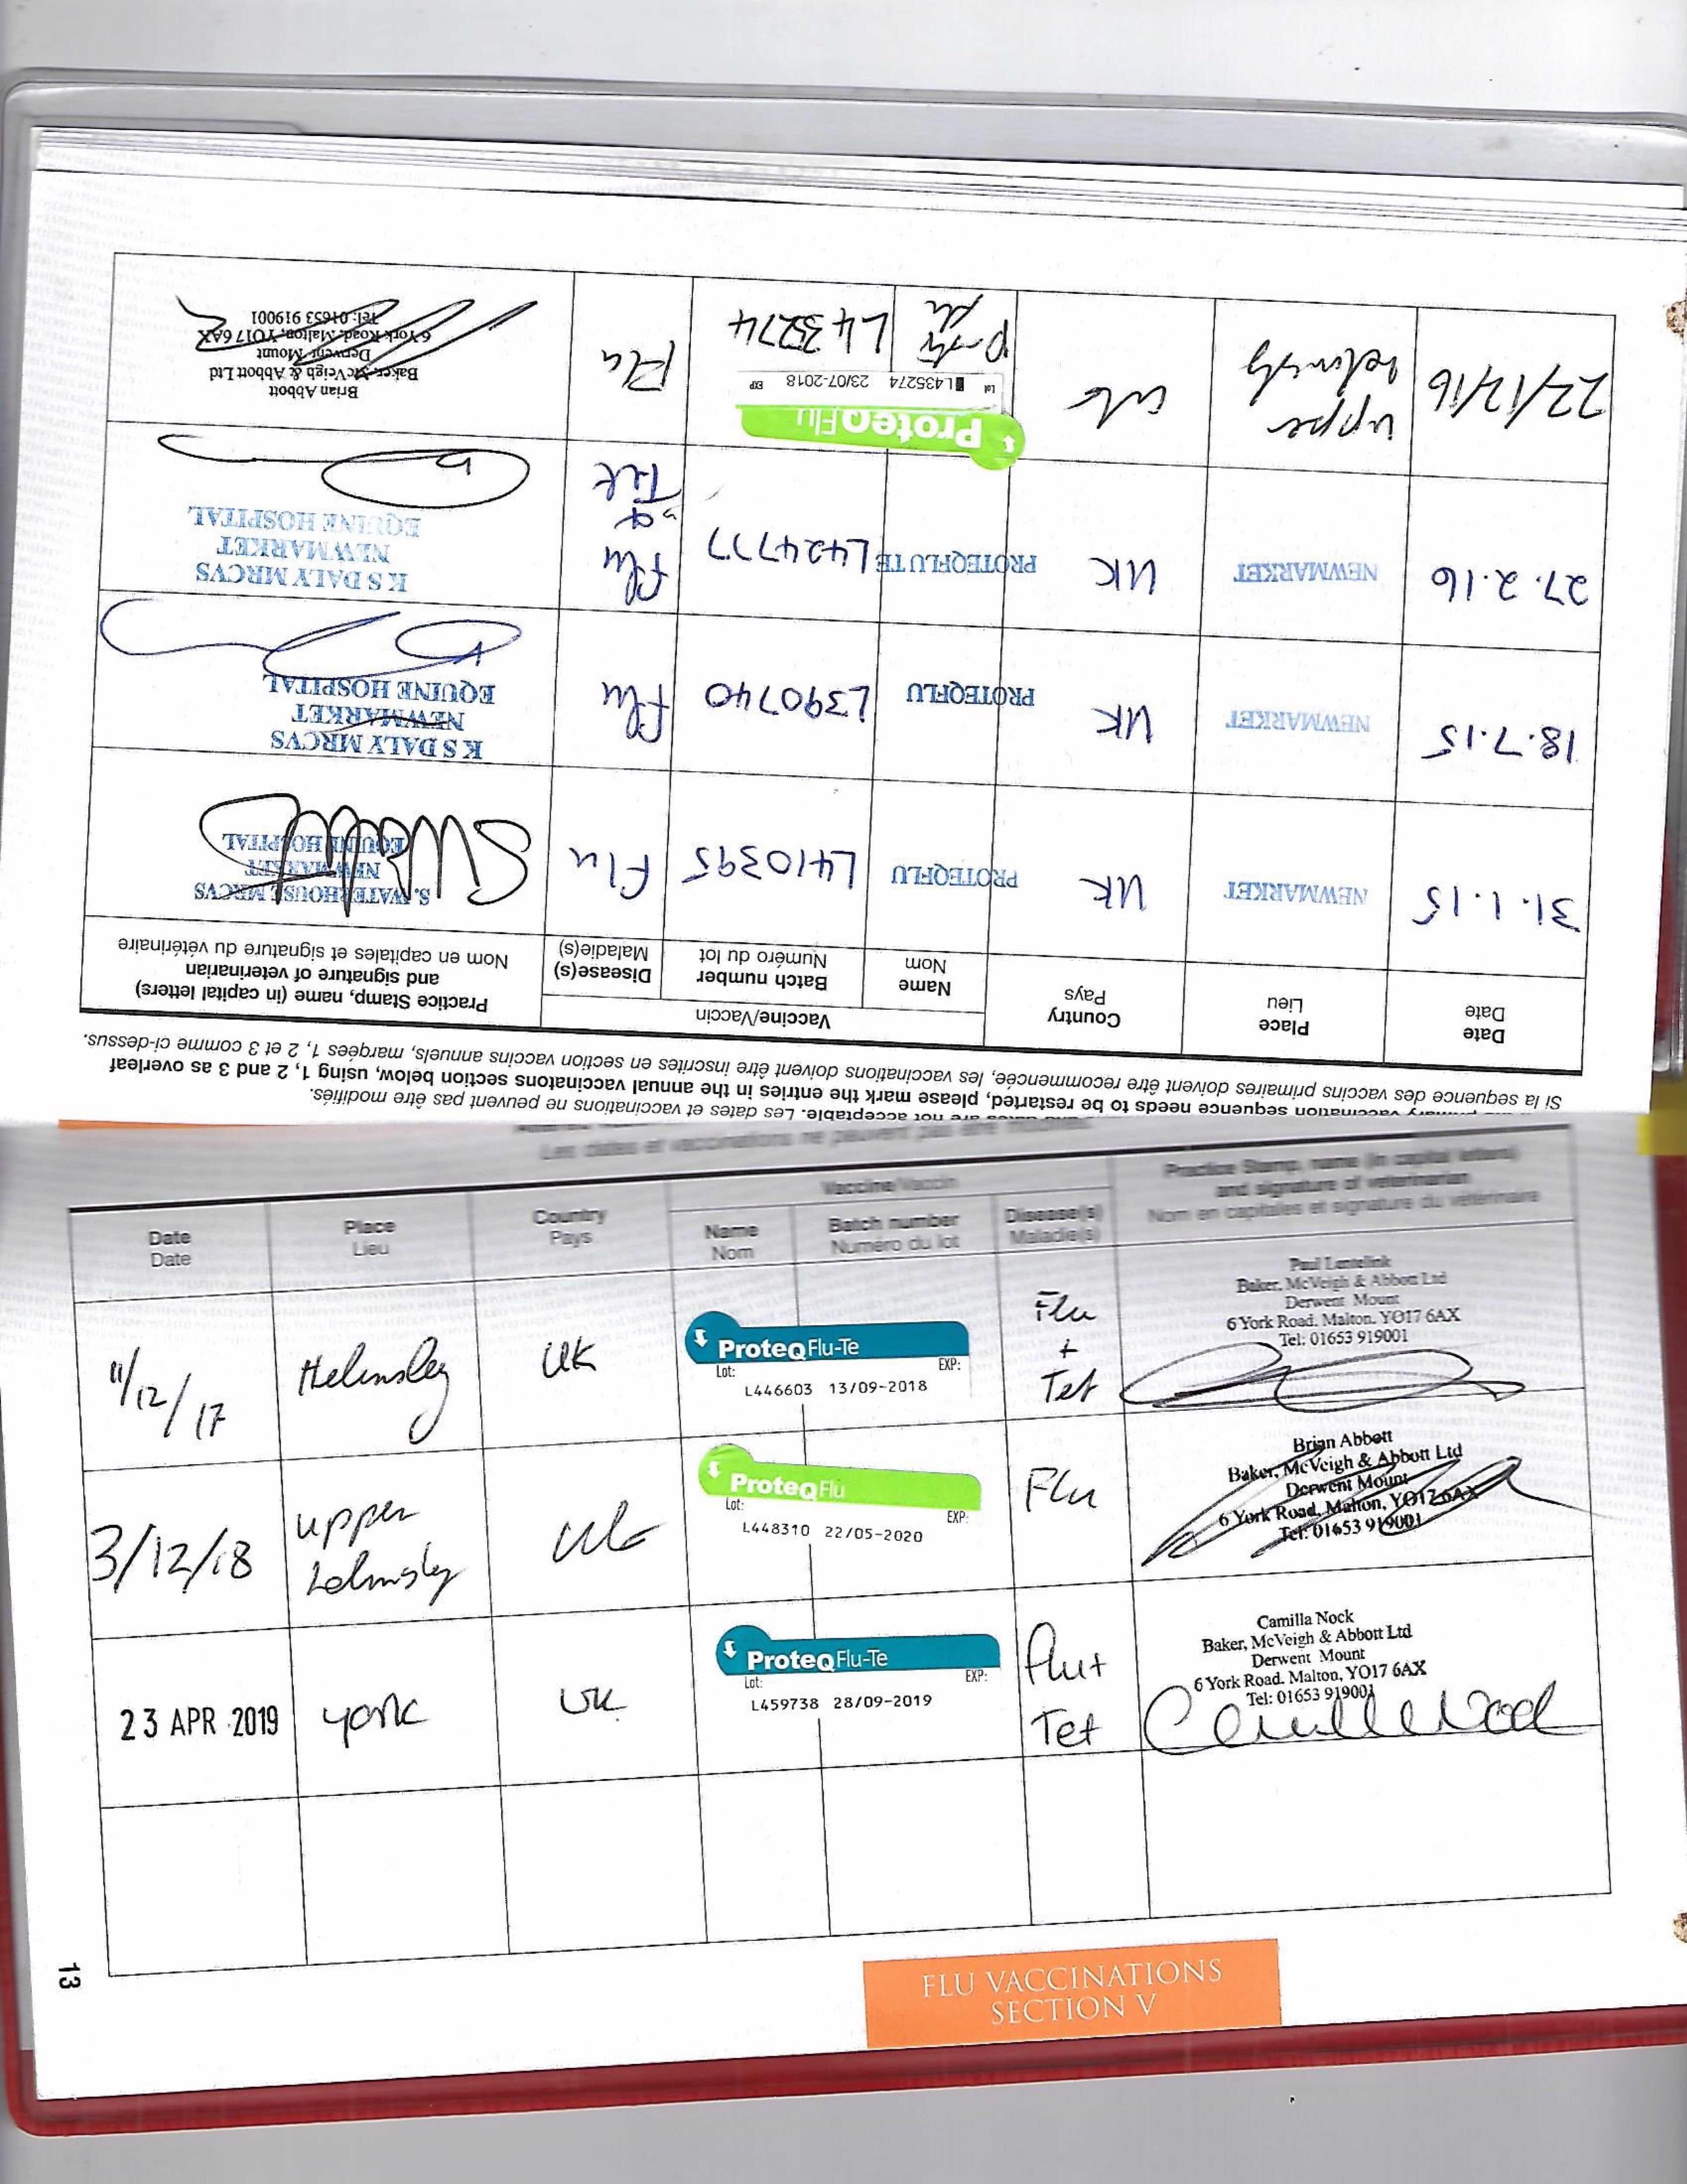 primary vaccination sequence needs to be restarted, please mark the entries in the annual vaccinatons section below, using 1, 2 and 3 as overleaf
are not acceptable. Les dates et vaccinations ne peuvent pas être modifiés.
Si la sequence des vaccins primaires doivent être recommencée, les vaccinations doivent être inscrites en section vaccins annuels, marqées 1, 2 et 3 comme ci-dessus.
Date
Date
Place
Lieu
Country
Pays
Vaccine/Vaccin
Name
Nom
Batch number
Numéro du lot
Disease(s)
Maladie(s)
Practice Stamp, name (in capital letters)
and signature of veterinarian
Nom en capitales et signature du vétérinaire
31.1.15
NEWMARKET
UK
PROTEQFLU
L410395
Flu
S. WATERHOUSE MRCVS
NEWMARKET
EQUINE HOSPITAL
18.7.15
NEWMARKET
UK
PROTEQFLU
L390740
Flu
K S DALY MRCVS
NEWMARKET
EQUINE HOSPITAL
27.2.16
NEWMARKET
UK
PROTEQFLU TE
L424777
Flu
&
Tet
K S DALY MRCVS
NEWMARKET
EQUINE HOSPITAL
22/12/16
upper
helmsly
UK
ProteqFlu
Lot L435274 23/07-2018 EXP
L435274
Flu
Brian Abbott
Baker McVeigh & Abbott Ltd
Derwent Mount
6 York Road, Malton, YO17 6AX
Tel: 01653 919001
Les dates et vaccinations ne peuvent pas être modifiés.
Date
Date
Place
Lieu
Country
Pays
Vaccine/Vaccin
Name
Nom
Batch number
Numéro du lot
Disease(s)
Maladie(s)
Practice Stamp, name (in capital letters)
and signature of veterinarian
Nom en capitales et signature du vétérinaire
11/12/17
Helmsley
UK
ProteqFlu-Te
Lot: EXP:
L446603 13/09-2018
Flu
+
Tet
Paul
Baker, McVeigh & Abbott Ltd
Derwent Mount
6 York Road, Malton, YO17 6AX
Tel: 01653 919001
3/12/18
upper
Helmsley
UK
ProteqFlu
Lot: EXP:
L448310 22/05-2020
Flu
Brian Abbott
Baker, McVeigh & Abbott Ltd
Derwent Mount
6 York Road, Malton, YO17 6AX
Tel: 01653 919001
23 APR 2019
york
UK
ProteqFlu-Te
Lot: EXP:
L459738 28/09-2019
Flu+
Tet
Camilla Nock
Baker, McVeigh & Abbott Ltd
Derwent Mount
6 York Road. Malton, YO17 6AX
Tel: 01653 919001
13
FLU VACCINATIONS
SECTION V